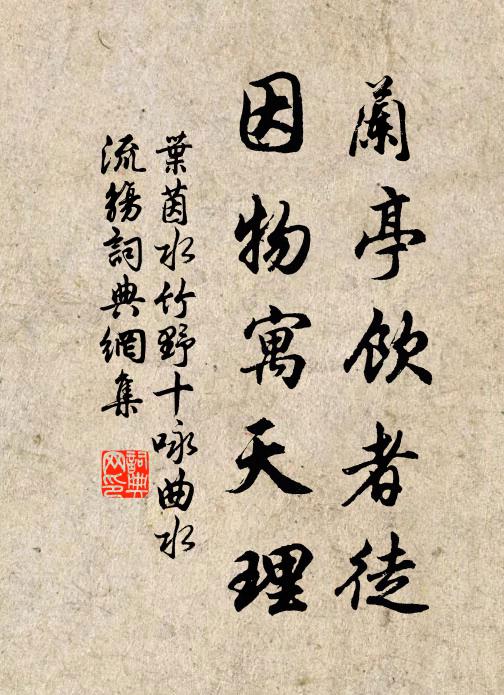 蘭亭飲者徒
因物寓天理
葉茵水竹野十咏曲水
流觴詞典網集
詞典網印